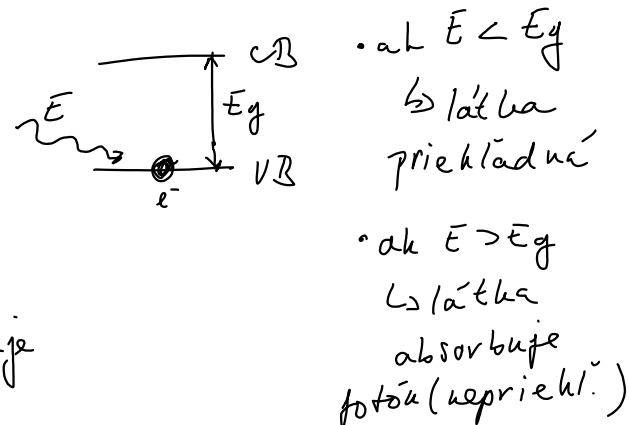 CB
E
Eg
VB
e⁻
• ak E < Eg
↳ látka
priehľadná
• ak E > Eg
↳ látka
absorbuje
fotón (nepriehľ.)
je